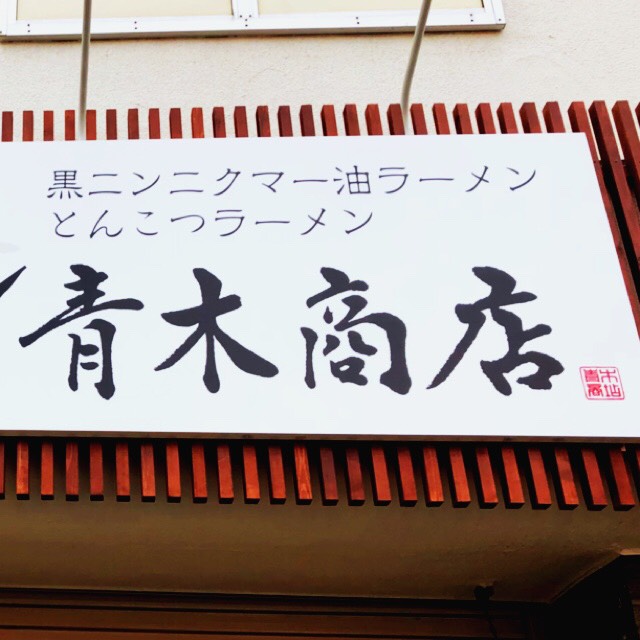 黒ニンニクマー油ラーメン
とんこつラーメン
青木商店